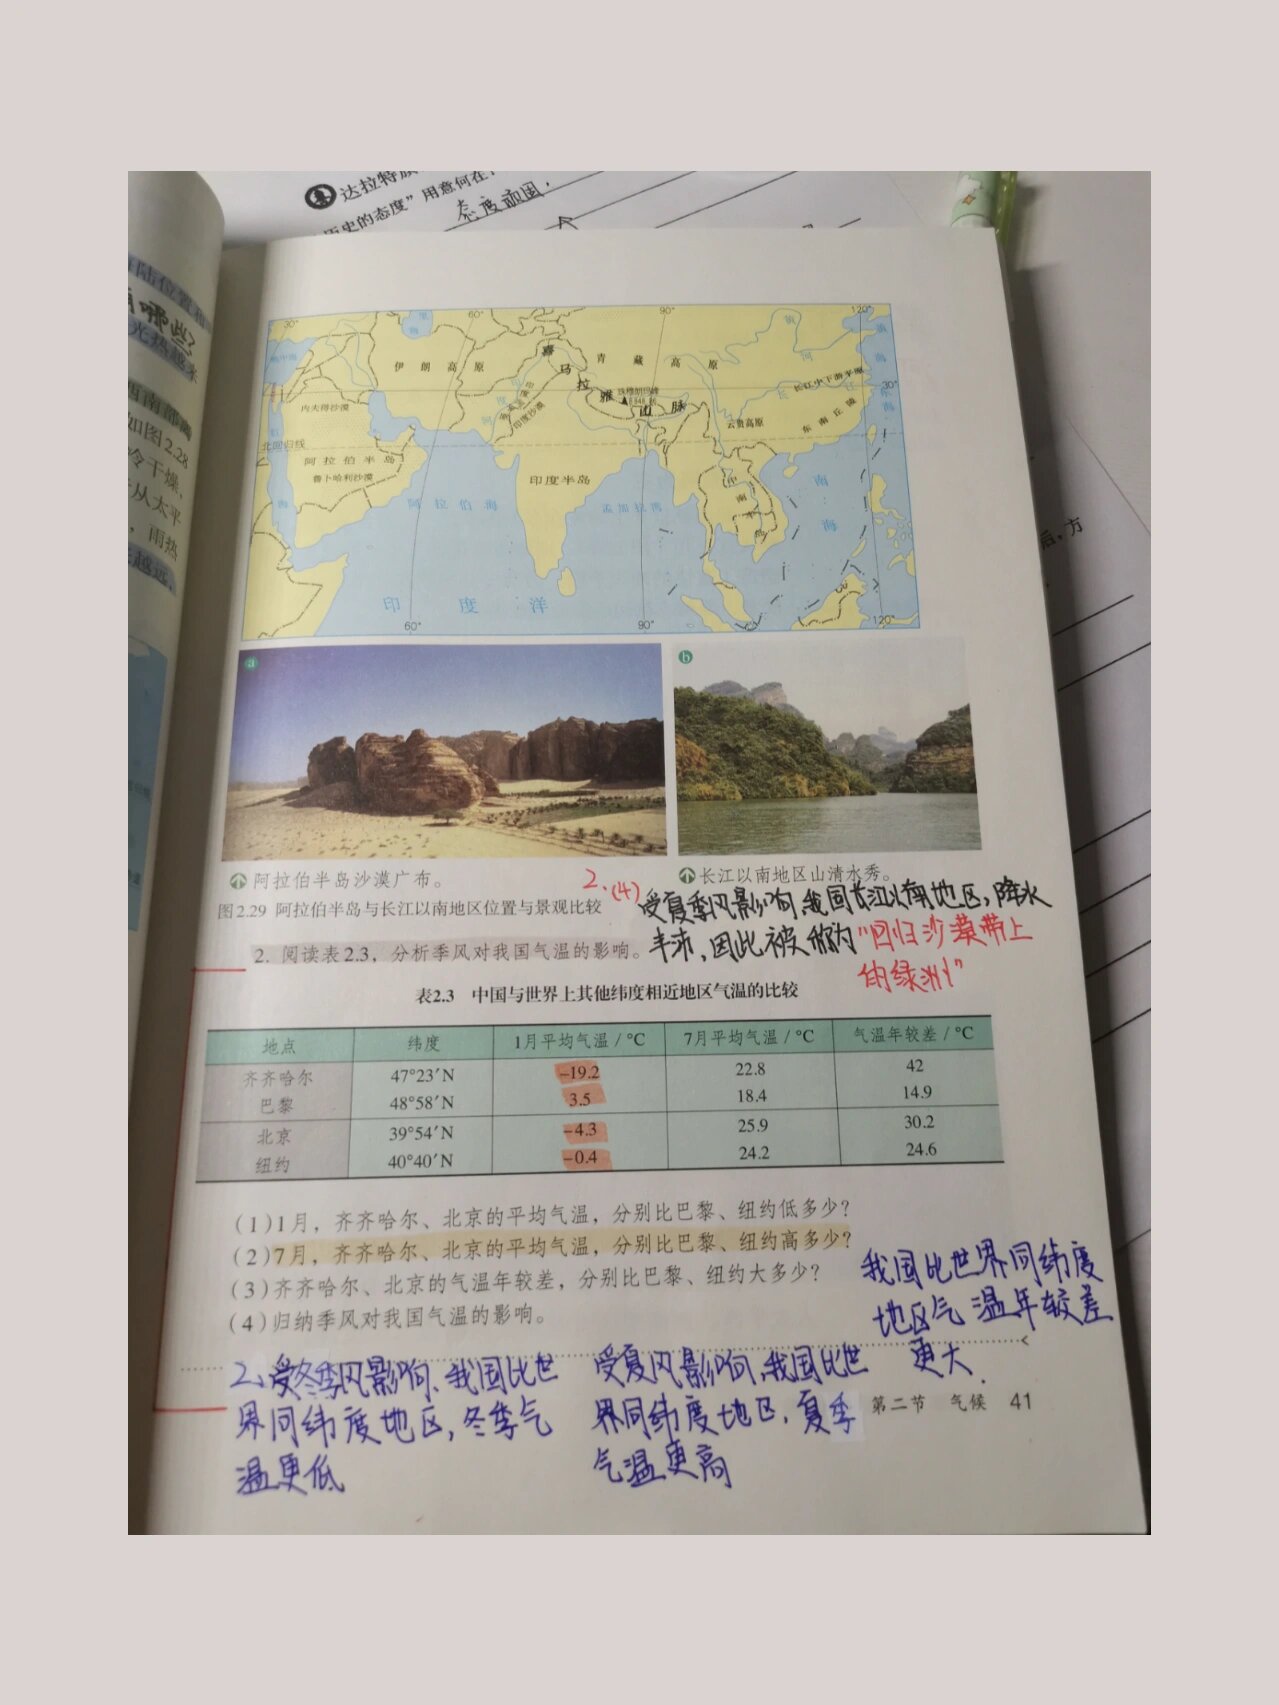 达拉特旗
历史的态度”用意何在
态度顽固.
陆位置和
有哪些?
光热越来
西南部
如图2.28
冷干燥,
从太平
,雨热
越远,
后,方
30° 60° 90° 120°
里海
地中海
伊朗高原
青藏高原
黄河
黄海
喜马拉雅山脉
珠穆朗玛峰
长江
长江中下游平原
30°
东海
内夫得沙漠
印度河
印度沙漠
云贵高原
东南丘陵
北回归线
阿拉伯半岛
鲁卜哈利沙漠
印度半岛
红海
阿拉伯海
孟加拉湾
中南半岛
南海
印度洋
60° 90° 120°
a
b
阿拉伯半岛沙漠广布。
长江以南地区山清水秀。
图2.29 阿拉伯半岛与长江以南地区位置与景观比较
2.(4) 受夏季风影响,我国长江以南地区,降水
丰沛,因此被称为“回归沙漠带上
的绿洲”
2. 阅读表2.3,分析季风对我国气温的影响。
表2.3 中国与世界上其他纬度相近地区气温的比较
地点 纬度 1月平均气温/℃ 7月平均气温/℃ 气温年较差/℃
齐齐哈尔 47°23′N -19.2 22.8 42
巴黎 48°58′N 3.5 18.4 14.9
北京 39°54′N -4.3 25.9 30.2
纽约 40°40′N -0.4 24.2 24.6
(1)1月,齐齐哈尔、北京的平均气温,分别比巴黎、纽约低多少?
(2)7月,齐齐哈尔、北京的平均气温,分别比巴黎、纽约高多少?
(3)齐齐哈尔、北京的气温年较差,分别比巴黎、纽约大多少?
(4)归纳季风对我国气温的影响。
我国比世界同纬度
地区气温年较差
更大.
2、受冬季风影响、我国比世
界同纬度地区,冬季气
温更低
受夏风影响,我国比世
界同纬度地区,夏季
气温更高
第二节 气候 41